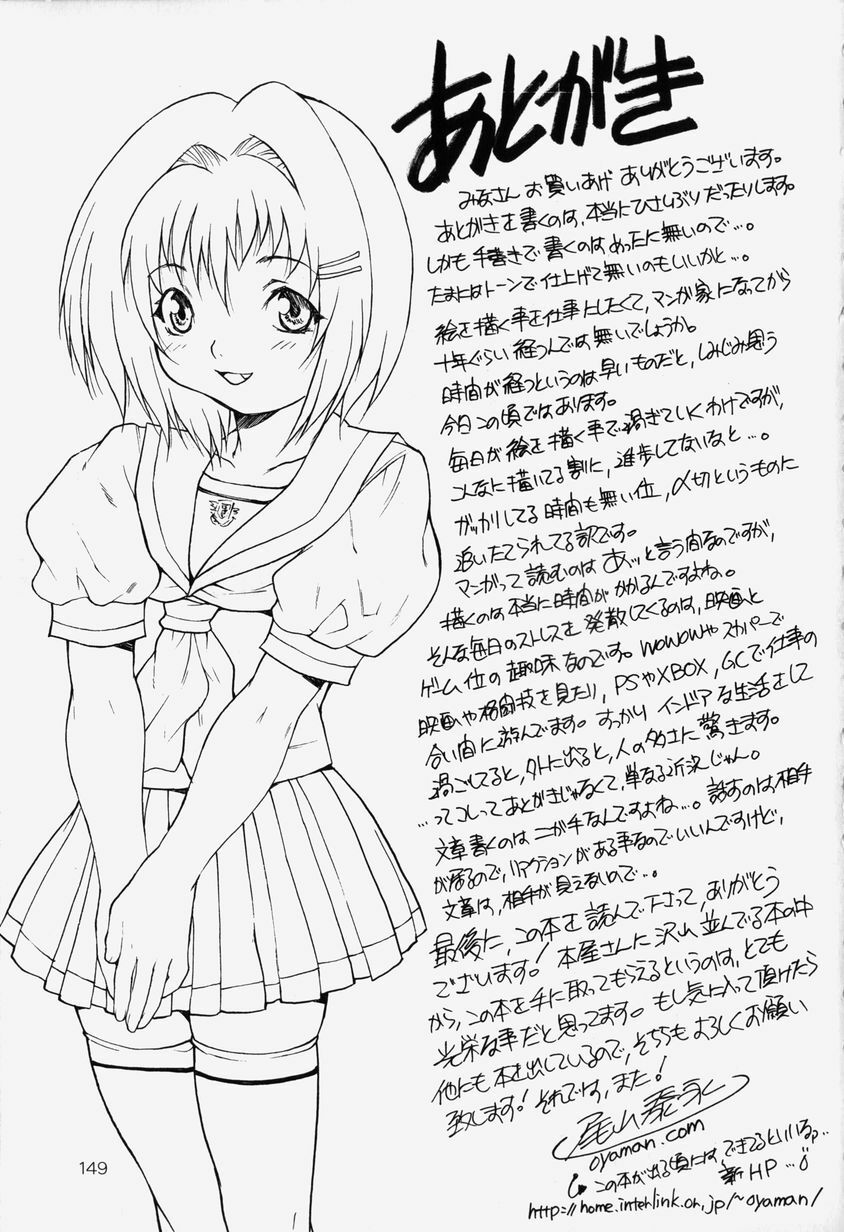 あとがき
みなさん お買いあげ ありがとうございます。
あとがきを書くのは、本当にひさしぶりだったりします。
しかも手書きで書くのは、めったに無いので…。
たまにはトーンで仕上げて無いのもいいかと…。
絵を描く事を仕事にしたくて、マンガ家になってから
十年ぐらい経つんでは無いでしょうか。
時間が経つというのは早いものだと、しみじみ思う
今日この頃ではあります。
毎日が絵を描く事で過ぎていくわけですが、
こんなに描いてる割に、進歩してないなと…。
ガッカリしてる時間も無い位、〆切というものに
追いたてられてる訳です。
マンガって読むのはあッと言う間なのですが、
描くのは本当に時間がかかるんですよね。
そんな毎日のストレスを発散してくるのは、映画と
ゲーム位の趣味なのです。WOWOWやスカパーで
映画や格闘技を見たり、PSやXBOX,GCで仕事の
合い間に遊んでます。すっかりインドアな生活をして
過ごしてると、外に出ると、人の多さに驚きます。
…ってコレってあとがきじゃなくて、単なる近況じゃん。
文章書くのはニが手なんですよね…。話すのは、相手
が居るので、リアクションがある事なのでいいんですけど、
文章は、相手が見えないので…。
最後に、この本を読んで下さって、ありがとう
でざいます! 本屋さんに沢山並んでる本の中
から、この本を手に取ってもらえるというのは、とても
光栄な事だと思ってます。もし気に入って頂けたら
他にも本を出しているので、そちらもよろしくお願い
致します! それでは、また!
尾山泰永
oyaman.com
この本が出る頃には、できてるといいな…
新HP…
http://home.interlink.or.jp/~oyaman/
149